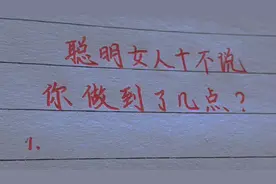 聪明女人十不说
你做到了几点?
1、